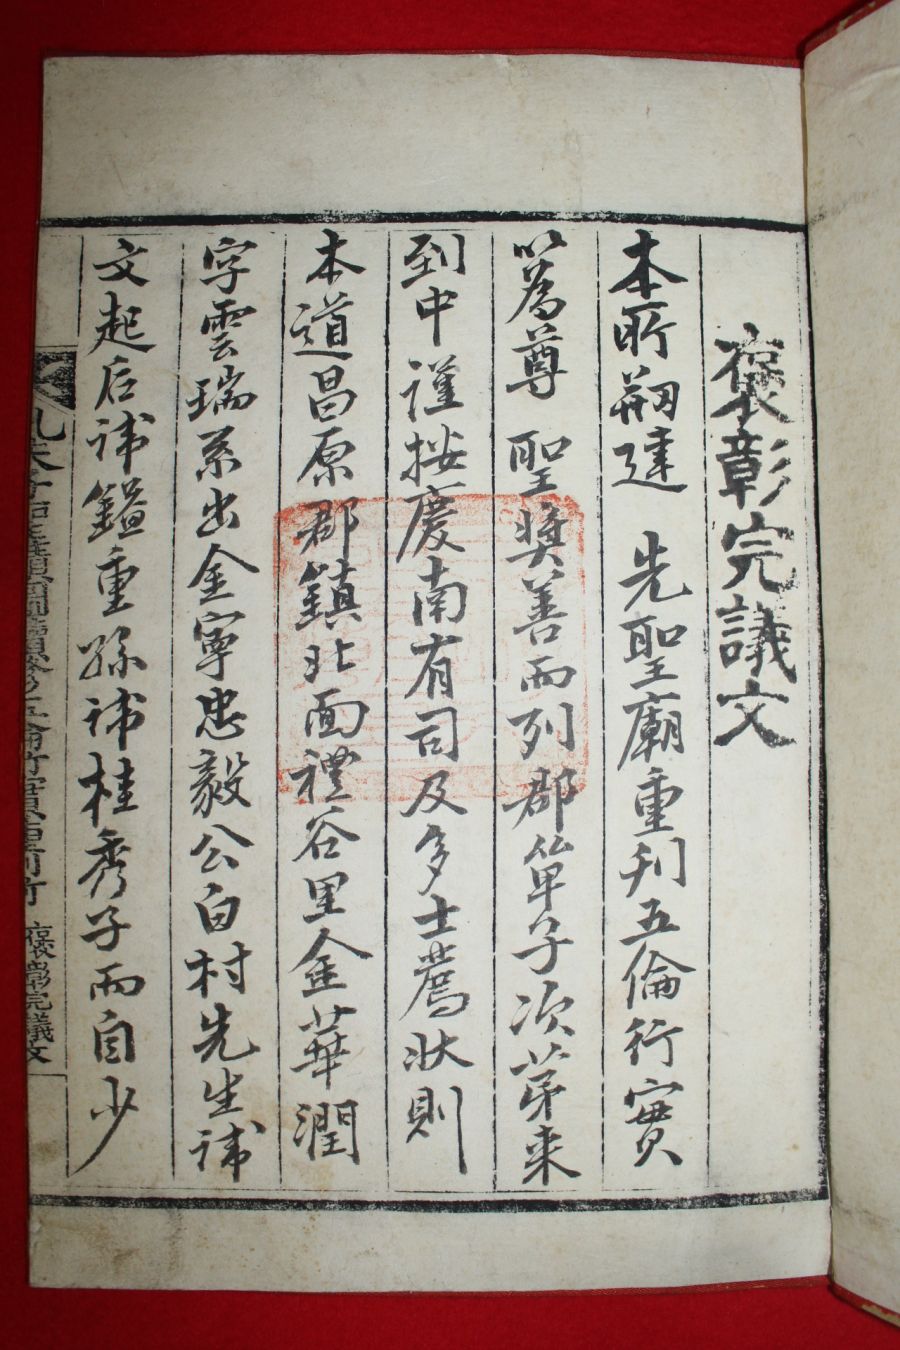 褒彰完議文
本所刱建　先聖廟重刊五倫行實
以爲尊　聖奬善而列郡單子次苐来
到中謹按慶南有司及多士薦狀則
本道昌原郡鎮北面禮谷里金華潤
字雲瑞系出金寧忠毅公白村先生諱
文起后諱鎰重孫諱桂秀子而自少
褒彰完議文